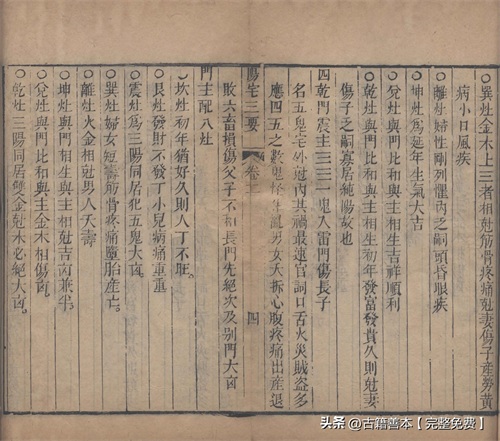 ○巽灶金木上三者相尅筋骨疼痛尅妻傷子產勞黃
病小口風疾
○離灶婦性剛烈懼內乏嗣頭昏眼疾
○坤灶爲延年生氣大吉
○兌灶與門比和與主相生吉祥順利
○乾灶與門比和與主相生初年發富發貴久則尅妻
傷子乏嗣寡居純陽故也
四乾門震主三三三一鬼入雷門傷長子
名五鬼宅外尅內其禍最速官詞口舌火災賊盜多
應四五之數鬼怪生亂男女夭折心腹疼痛出產退
敗六畜損傷父子不和長門先絕次及別門大凶
陽宅三要
卷二
四
門主配八灶
○坎灶初年猶好久則人丁不旺
○艮灶發財不發丁小兒病痛重重
○震灶爲三陽同居犯五鬼大凶
○巽灶婦女短壽筋骨疼痛墮胎產亡
○離灶火金相尅男人夭壽
○坤灶與門比和與主相尅吉凶兼半
○兌灶與門比和與主金木相傷凶
○乾灶三陽同居雙金尅木必絕大凶
头条 @古籍善本【完整免费】